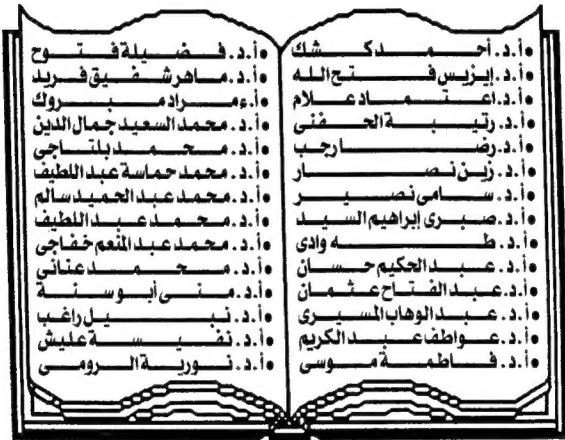 أ.د. أحمد كشك
أ.د. إيزيس فتح الله
أ.د. اعتماد علام
أ.د. رتيبة الحفنى
أ.د. رضا رجب
أ.د. زين نصار
أ.د. سامى نصير
أ.د. صبرى إبراهيم السيد
أ.د. طه وادى
أ.د. عبد الحكيم حسان
أ.د. عبد الفتاح عثمان
أ.د. عبد الوهاب المسيرى
أ.د. عواطف عبد الكريم
أ.د. فاطمة موسى
أ.د. فضيلة فتوح
أ.د. ماهر شفيق فريد
أ.م مراد مبروك
أ.د. محمد السعيد جمال الدين
أ.د. محمد بلتاجى
أ.د. محمد حماسة عبد اللطيف
أ.د. محمد عبد الحميد سالم
أ.د. محمد عبد اللطيف
أ.د. محمد عبد المنعم خفاجى
أ.د. محمد عنانى
أ.د. منى أبو سنة
أ.د. نبيل راغب
أ.د. نفيسة عليش
أ.د. نورية الرومى